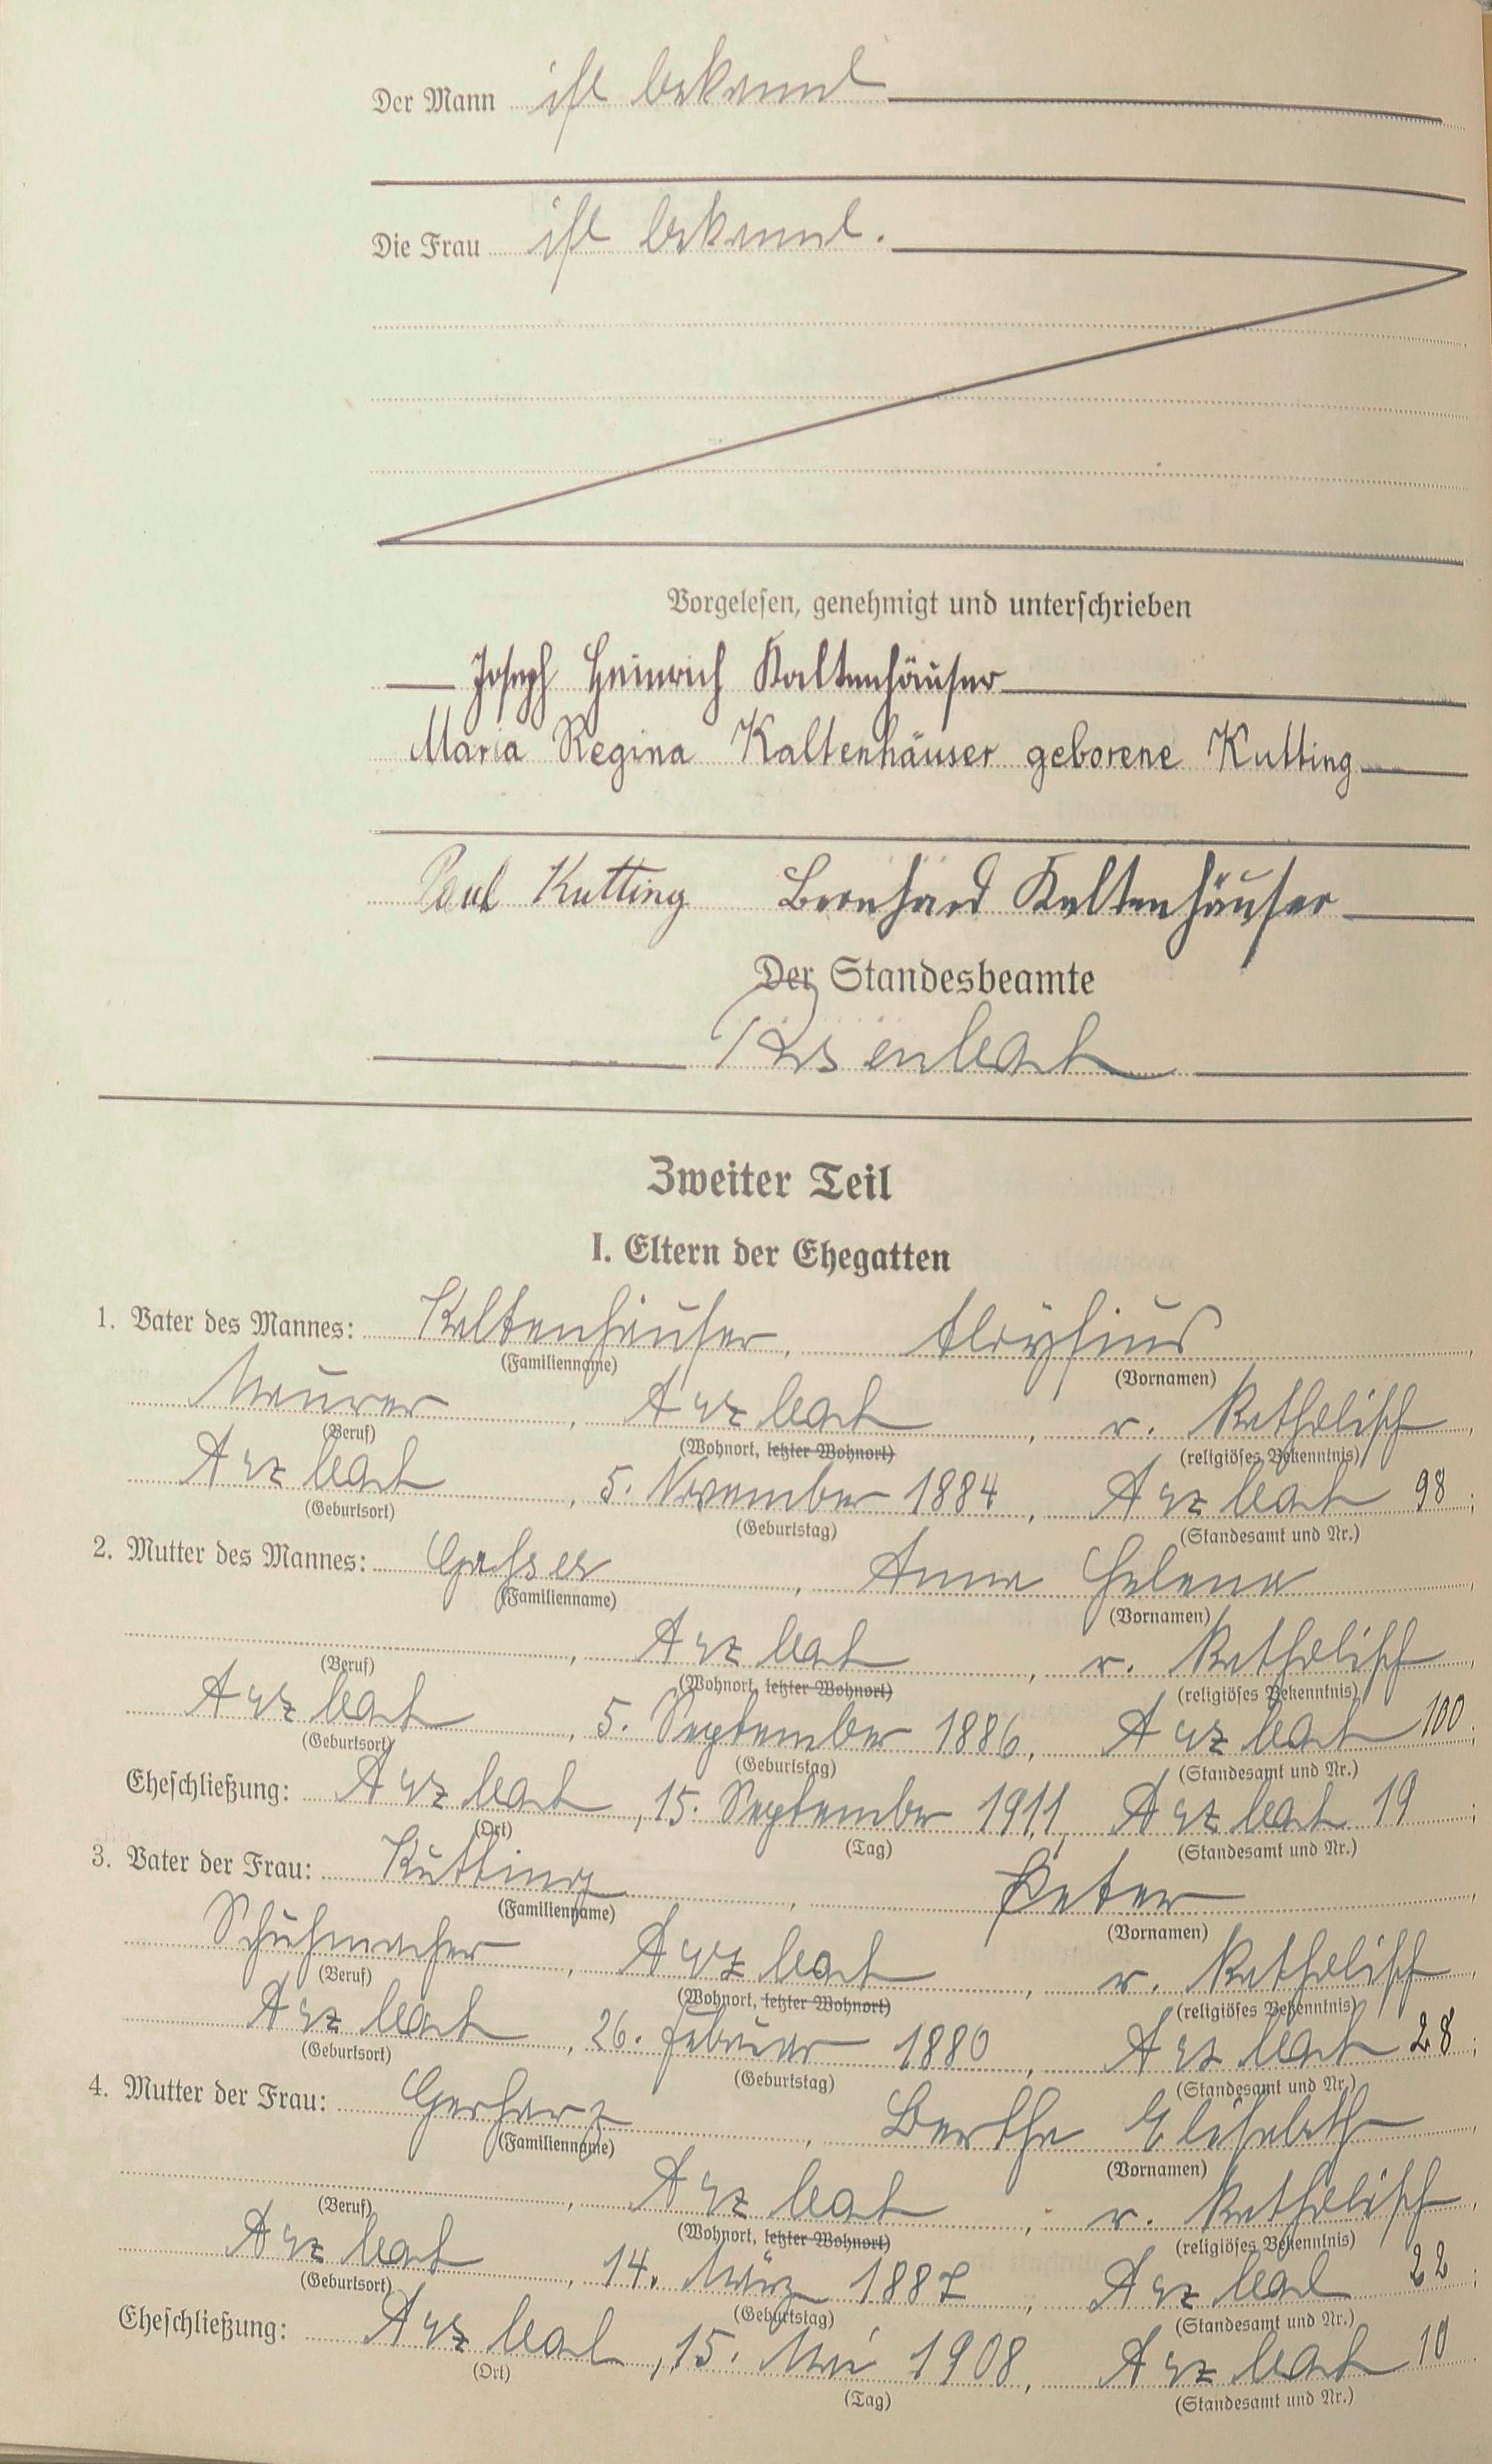 Der Mann ist bekannt
Die Frau ist bekannt.
Vorgelesen, genehmigt und unterschrieben
Joseph Heinrich Kaltenhäuser
Maria Regina Kaltenhäuser geborene Kutting
Paul Kutting Bernhard Kaltenhäuser
Der Standesbeamte
Zweiter Teil
I. Eltern der Ehegatten
1. Vater des Mannes: Kaltenhäuser, Aloysius,
(Familienname) (Vornamen)
Maurer, Arzbach, r. katholisch,
(Beruf) (Wohnort, letzter Wohnort) (religiöses Bekenntnis)
Arzbach, 5. November 1884, Arzbach 98;
(Geburtsort) (Geburtstag) (Standesamt und Nr.)
2. Mutter des Mannes: , Anna Helena,
(Familienname) (Vornamen)
, Arzbach, r. katholisch,
(Beruf) (Wohnort, letzter Wohnort) (religiöses Bekenntnis)
Arzbach, 5. September 1886, Arzbach 100;
(Geburtsort) (Geburtstag) (Standesamt und Nr.)
Eheschließung: Arzbach, 15. September 1911, Arzbach 19;
(Ort) (Tag) (Standesamt und Nr.)
3. Vater der Frau: Kutting, Peter,
(Familienname) (Vornamen)
Schuhmacher, Arzbach, r. katholisch,
(Beruf) (Wohnort, letzter Wohnort) (religiöses Bekenntnis)
Arzbach, 26. Februar 1880, Arzbach 28;
(Geburtsort) (Geburtstag) (Standesamt und Nr.)
4. Mutter der Frau: Gerharz, Bertha Elisabeth,
(Familienname) (Vornamen)
, Arzbach, r. katholisch,
(Beruf) (Wohnort, letzter Wohnort) (religiöses Bekenntnis)
Arzbach, 14. März 1887, Arzbach 22;
(Geburtsort) (Geburtstag) (Standesamt und Nr.)
Eheschließung: Arzbach, 15. Mai 1908, Arzbach 10
(Ort) (Tag) (Standesamt und Nr.)